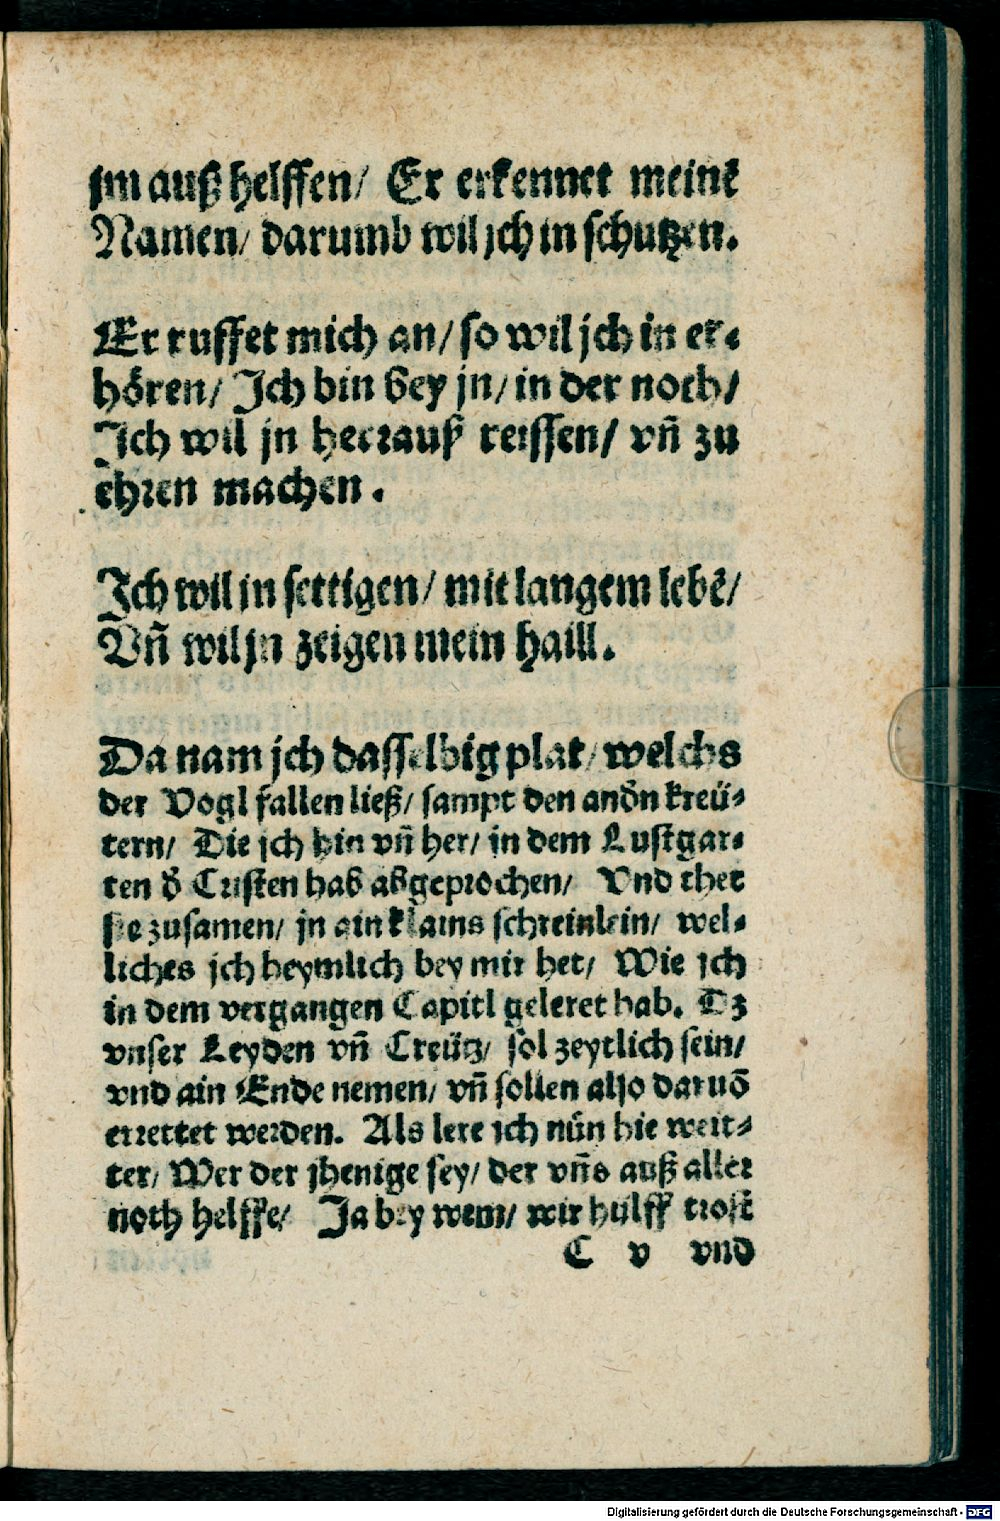 jm auß helffen/ Er erkennet meinē
Namen/ darumb wil jch in schutzen.
Er ruffet mich an/ so wil jch in er⸗
hören/ Jch bin bey jn/ in der noth/
Jch wil jn herrauß reissen/ vñ zu
ehren machen.
Jch wil jn settigen/ mit langem lebē/
Vñ wil jn zeigen mein haill.
Da nam jch dasselbig plat/ welchs
der Vogl fallen ließ/ sampt den andn̄ kreü⸗
tern/ Die jch hin vñ her/ in dem Lustgar⸗
ten d̄ Cristen hab abgeprochen/ Vnd thet
sie zusamen/ jn ain klains schreinlein/ wel⸗
liches jch heymlich bey mir het/ Wie jch
in dem vergangen Capitl geleret hab. Dz
vnser Leyden vñ Creütz/ sol zeytlich sein/
vnd ain Ende nemen/ vñ sollen also daruō
errettet werden. Als lere jch nün hie weit⸗
ter/ Wer der jhenige sey/ der vñs auß aller
noth helffe/ Ja bey wem/ wir hülff trost
C v vnd
Digitalisierung gefördert durch die Deutsche Forschungsgemeinschaft - DFG